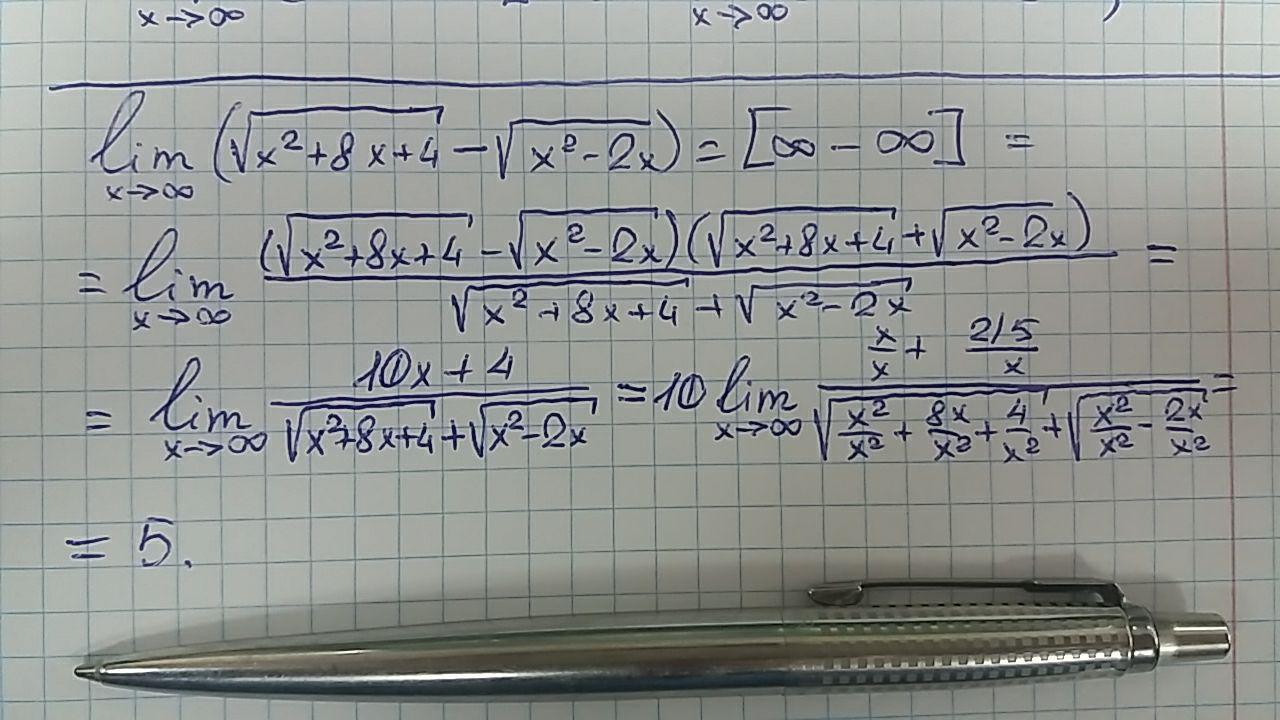 x→∞ x→∞ ,
lim x→∞ (√(x²+8x+4) − √(x²−2x)) = [∞ − ∞] =
= lim x→∞ ((√(x²+8x+4) − √(x²−2x))(√(x²+8x+4) + √(x²−2x))) / (√(x²+8x+4) + √(x²−2x)) =
= lim x→∞ (10x + 4) / (√(x²+8x+4) + √(x²−2x)) = 10 lim x→∞ (x/x + (2/5)/x) / (√(x²/x² + 8x/x² + 4/x²) + √(x²/x² − 2x/x²)) =
= 5.